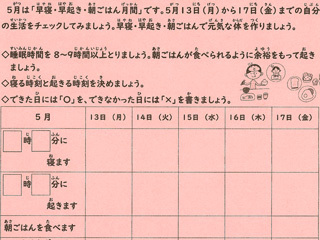 5月は「早寝・早起き・朝ごはん月間」です。5月13日（月）から17日（金）までの自分
の生活をチェックしてみましょう。早寝・早起き・朝ごはんで元気な体を作りましょう。
◇睡眠時間を8～9時間以上とりましょう。朝ごはんが食べられるように余裕をもって起き
ましょう。
◇寝る時刻と起きる時刻を決めましょう。
◇できた日には「○」を、できなかった日には「×」を書きましょう。
5月 13日（月） 14日（火） 15日（水） 16日（木） 17日（金）
時 分に
寝ます
時 分に
起きます
朝ごはんを食べます